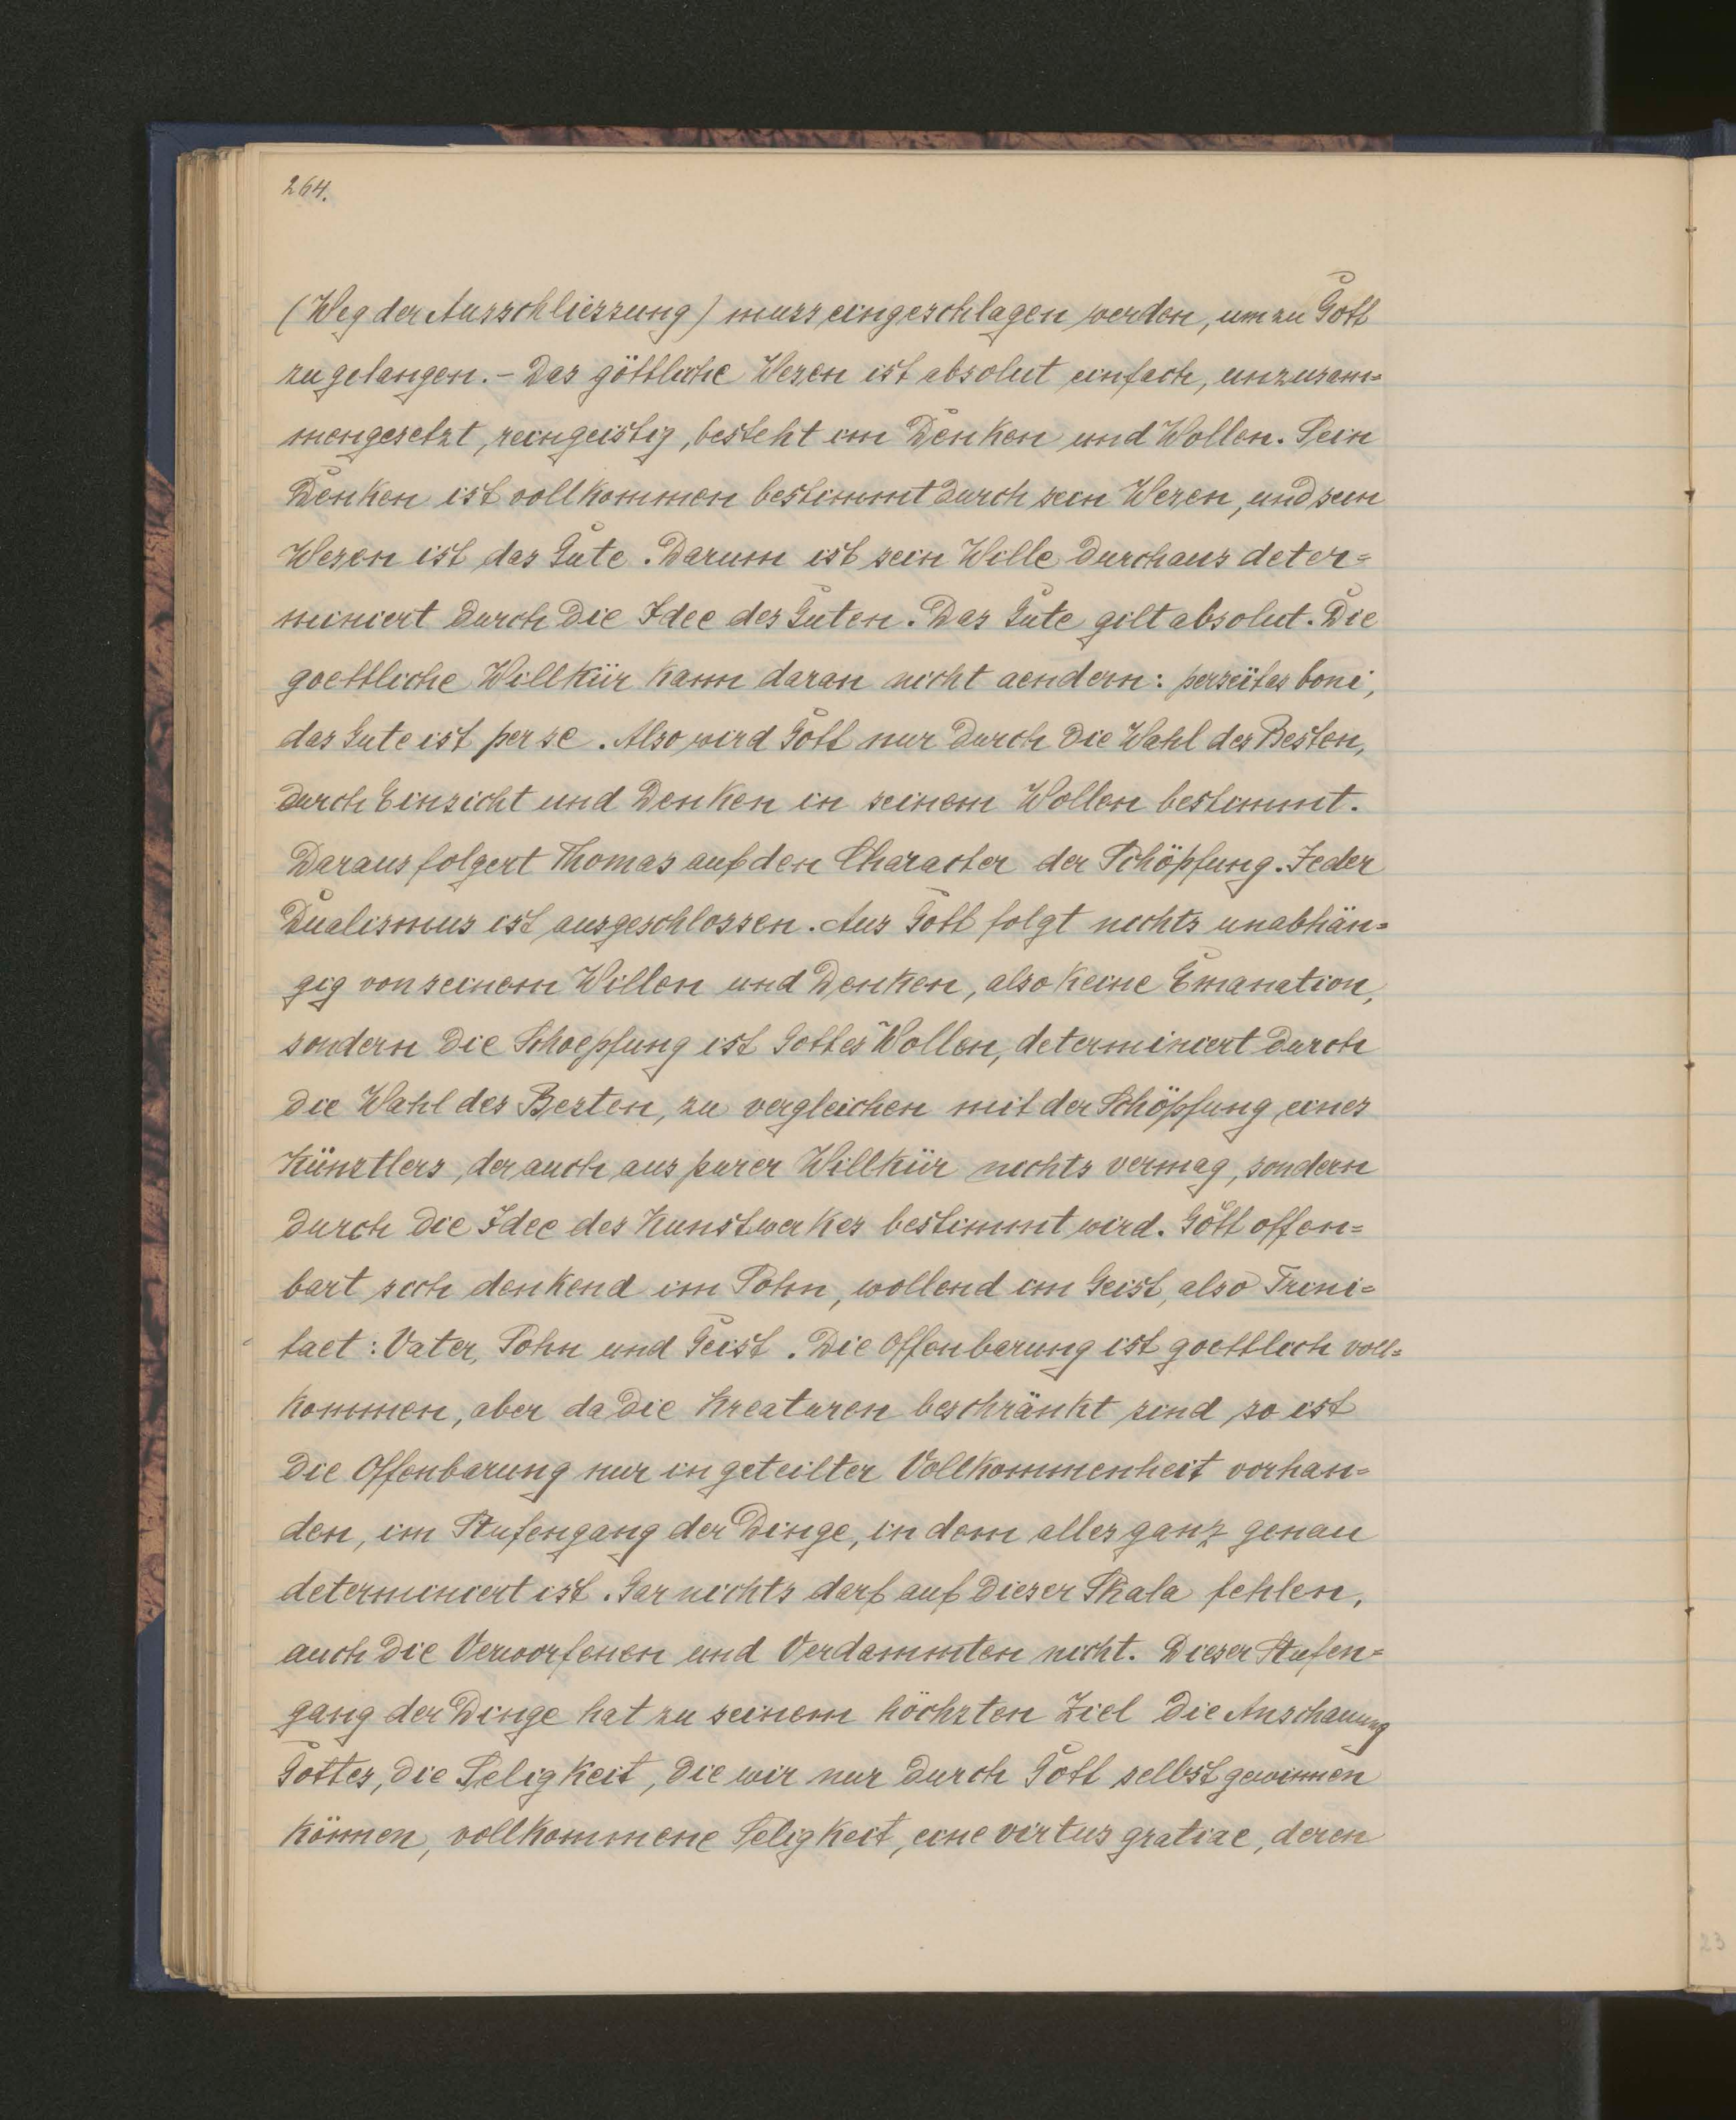 264.
(Weg der Ausschliessung) muss eingeschlagen werden, um zu Gott
zu gelangen. – Das göttliche Wesen ist absolut einfach, unzusam=
mengesetzt, reingeistig, besteht im Denken und Wollen. Sein
Denken ist vollkommen bestimmt durch sein Wesen, und sein
Wesen ist das Gute. Darum ist sein Wille durchaus deter=
miniert durch die Idee des Guten. Das Gute gilt absolut. Die
goettliche Willkür kann daran nicht aendern: perseïtas boni,
das Gute ist per se. Also wird Gott nur durch die Wahl des Besten,
durch Einsicht und Denken in seinem Wollen bestimmt.
Daraus folgert Thomas auf den Character der Schöpfung. Jeder
Dualismus ist ausgeschlossen. Aus Gott folgt nichts unabhän=
gig von seinem Willen und Denken, also keine Emanation,
sondern die Schoepfung ist Gottes Wollen, determiniert durch
die Wahl des Besten, zu vergleichen mit der Schöpfung eines
Künstlers, der auch aus purer Willkür nichts vermag, sondern
durch die Idee des Kunstwerkes bestimmt wird. Gott offen=
bart sich denkend im Sohn, wollend im Geist, also Trini=
taet: Vater, Sohn und Geist. Die Offenbarung ist goettlich voll=
kommen, aber da die Kreaturen beschränkt sind so ist
die Offenbarung nur in geteilter Vollkommenheit vorhan=
den, im Stufengang der Dinge, in dem alles ganz genau
determiniert ist. Gar nichts darf auf dieser Skala fehlen,
auch die Verworfenen und Verdammten nicht. Dieser Stufen=
gang der Dinge hat zu seinem höchsten Ziel die Anschauung
Gottes, die Seligkeit, die wir nur durch Gott selbst gewinnen
können, vollkommene Seligkeit, eine virtus gratiae, deren
23